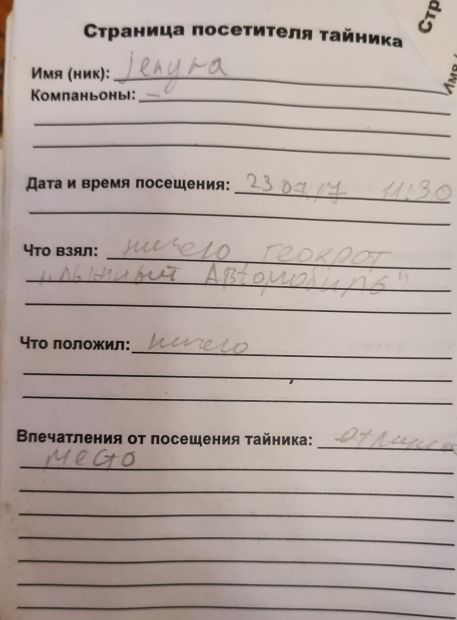 Страница посетителя тайника
Стр
Имя (ник):
Компаньоны: –
Дата и время посещения: 23 07.17 11:30
Что взял: ничего геокрот
Автомобиль"
Что положил: ничего
Впечатления от посещения тайника:
место